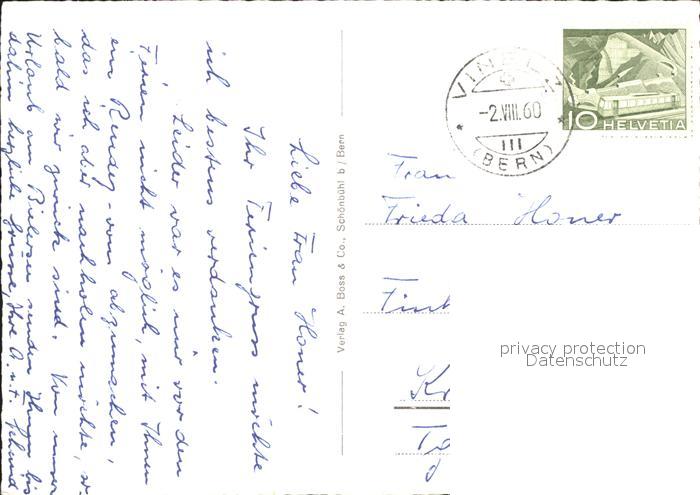 Liebe Frau Honer!
Ihr Feriengruss möchte
ich bestens verdanken.
Leider war es mir vor den
Ferien nicht möglich, mit Ihnen
ein Rendez-vous abzumachen,
das ich aber nachholen möchte, so-
bald wir zurück sind. Von unserem
Urlaub am Bielersee senden Ihnen bis
dahin herzliche Grüsse, Ihre A. u. F.
Verlag A. Boss & Co., Schönbühl b/Bern
-2.VIII.60
III
(BERN)
10 HELVETIA
Frau
Frieda Honer
privacy protection
Datenschutz